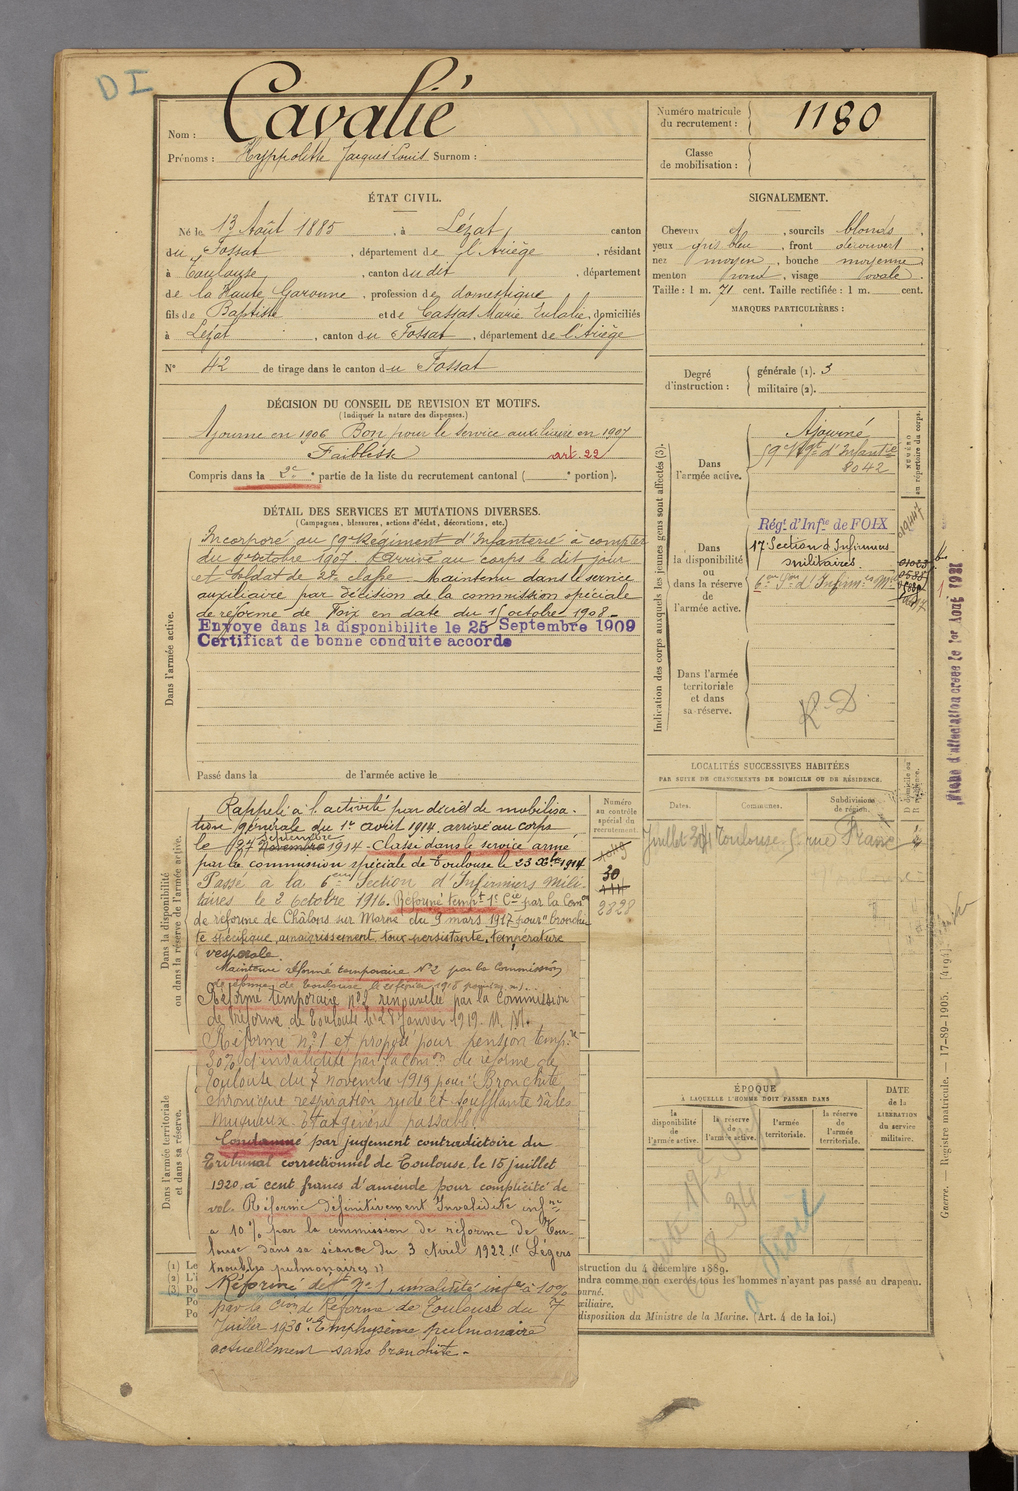 D I
Nom : Cavalié
Prénoms : Hyppolithe Jacques Louis Surnom :
Numéro matricule
du recrutement : 1180
Classe
de mobilisation :
ÉTAT CIVIL.
Né le 13 Août 1885, à Lézat, canton
du Fossat, département de l'Ariège, résidant
à Toulouse, canton du dit, département
de la Haute Garonne, profession de domestique
fils de Baptiste et de Cassas Marie Eulalie, domiciliés
à Lézat, canton du Fossat, département de l'Ariège
N° 42 de tirage dans le canton du Fossat
SIGNALEMENT.
Cheveux et, sourcils blonds
yeux gris bleu, front découvert,
nez moyen, bouche moyenne,
menton rond, visage ovale.
Taille : 1 m. 71 cent. Taille rectifiée : 1 m. cent.
MARQUES PARTICULIÈRES :
Degré
d'instruction :
générale (1). 3
militaire (2).
DÉCISION DU CONSEIL DE REVISION ET MOTIFS.
(Indiquer la nature des dispenses.)
Ajourné en 1906 Bon pour le service auxiliaire en 1907
Faiblesse art. 22
Compris dans la 2e partie de la liste du recrutement cantonal ( e portion).
DÉTAIL DES SERVICES ET MUTATIONS DIVERSES.
(Campagnes, blessures, actions d'éclat, décorations, etc.)
Dans l'armée active.
Incorporé au 59e Régiment d'Infanterie à compter
du 9 octobre 1907. Arrivé au corps le dit jour
et soldat de 2e classe. Maintenu dans le service
auxiliaire par décision de la commission spéciale
de réforme de Foix en date du 15 octobre 1908 -
Envoye dans la disponibilite le 25 Septembre 1909
Certificat de bonne conduite accorde
Passé dans la de l'armée active le
Dans la disponibilité
ou dans la réserve de l'armée active.
Rappelé à l'activité par décret de mobilisa-
tion générale du 1er août 1914, arrivé au corps
septembre
le 27 novembre 1914 - Classé dans le service armé
par la commission spéciale de Toulouse le 23 Xbre 1914
Passé à la 6eme Section d'Infirmiers Mili-
taires le 2 octobre 1916. Réformé tempre 1e Cie par la Comon
de réforme de Châlons sur Marne du 9 mars 1917 pour "bronchi
te spécifique, amaigrissement toux persistante, température
vespérale.
Maintenu réformé temporaire N°2 par la Commission
de réforme de Toulouse le
Réforme temporaire n°2 renouvelée par la Commission
de Réforme de Toulouse le 28 Janvier 1919. M. M.
Réformé n°1 et proposé pour pension tempre
30% d'invalidité par la comon de réforme de
Toulouse du 7 novembre 1919 pour "Bronchite
chronique respiration rude et soufflante râles
muqueux. Etat général passable"
Dans l'armée territoriale
et dans sa réserve.
Condamné par jugement contradictoire du
Tribunal correctionnel de Toulouse le 15 juillet
1920 à cent francs d'amende pour complicité de
vol. Réformé définitivement Invalidité infre
à 10% par la commission de réforme de Tou-
louse dans sa séance du 3 Avril 1922 "Légers
troubles pulmonaires"
Réformé deft N°1, invalidité infre à 10%
par la Con de Réforme de Toulouse du 7
Juillet 1930 "Emphysème pulmonaire
actuellement sans bronchite -
Numéro
au contrôle
spécial du
recrutement.
30
2828
Indication des corps auxquels les jeunes gens sont affectés (3).
NUMÉRO
au répertoire du corps.
Dans
l'armée active.
Ajourné
59e Rgt d'Infantie
8042
Dans
la disponibilité
ou
dans la réserve
de
l'armée active.
Régt d'Infie de FOIX
17e Section d'Infirmiers
militaires.
6eme Son d'Infirmrs Mres
Dans l'armée
territoriale
et dans
sa réserve.
R. D
LOCALITÉS SUCCESSIVES HABITÉES
PAR SUITE DE CHANGEMENTS DE DOMICILE OU DE RÉSIDENCE.
Dates. Communes. Subdivisions
de région. D domicile ou
R résidence.
Juillet 34 Toulouse
ÉPOQUE
À LAQUELLE L'HOMME DOIT PASSER DANS
la
disponibilité
de
l'armée active.
la
réserve
de
l'armée active.
l'armée
territoriale.
la réserve
de
l'armée
territoriale.
DATE
de la
LIBÉRATION
du service
militaire.
(1) Le
(2) L'i
(3) Po
Po
Po
struction du 4 décembre 1889.
endra comme non exercés tous les hommes n'ayant pas passé au drapeau.
ourné.
xiliaire.
disposition du Ministre de la Marine. (Art. 4 de la loi.)
Guerre. — Registre matricule. — 17-89-1905. [4194]